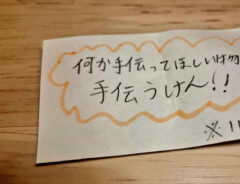 何か手伝ってほしい物
手伝うけん!!
※